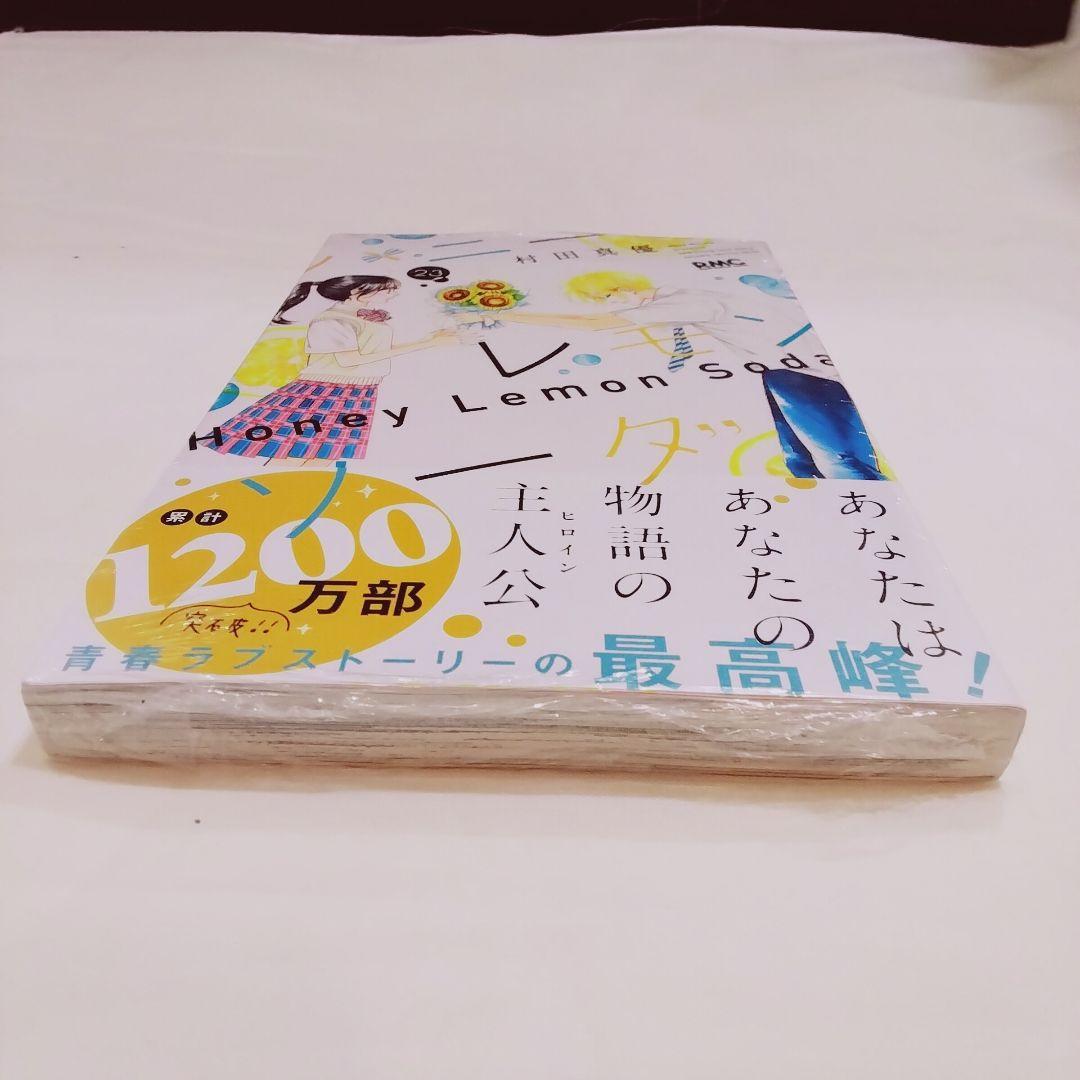 ハニー
村田真優
RMC
23
レモン
Honey Lemon Soda
ソーダ
あなたは
あなたの
物語の
主人公
ヒロイン
累計
1200
万部
突破!!
青春ラブストーリーの最高峰!